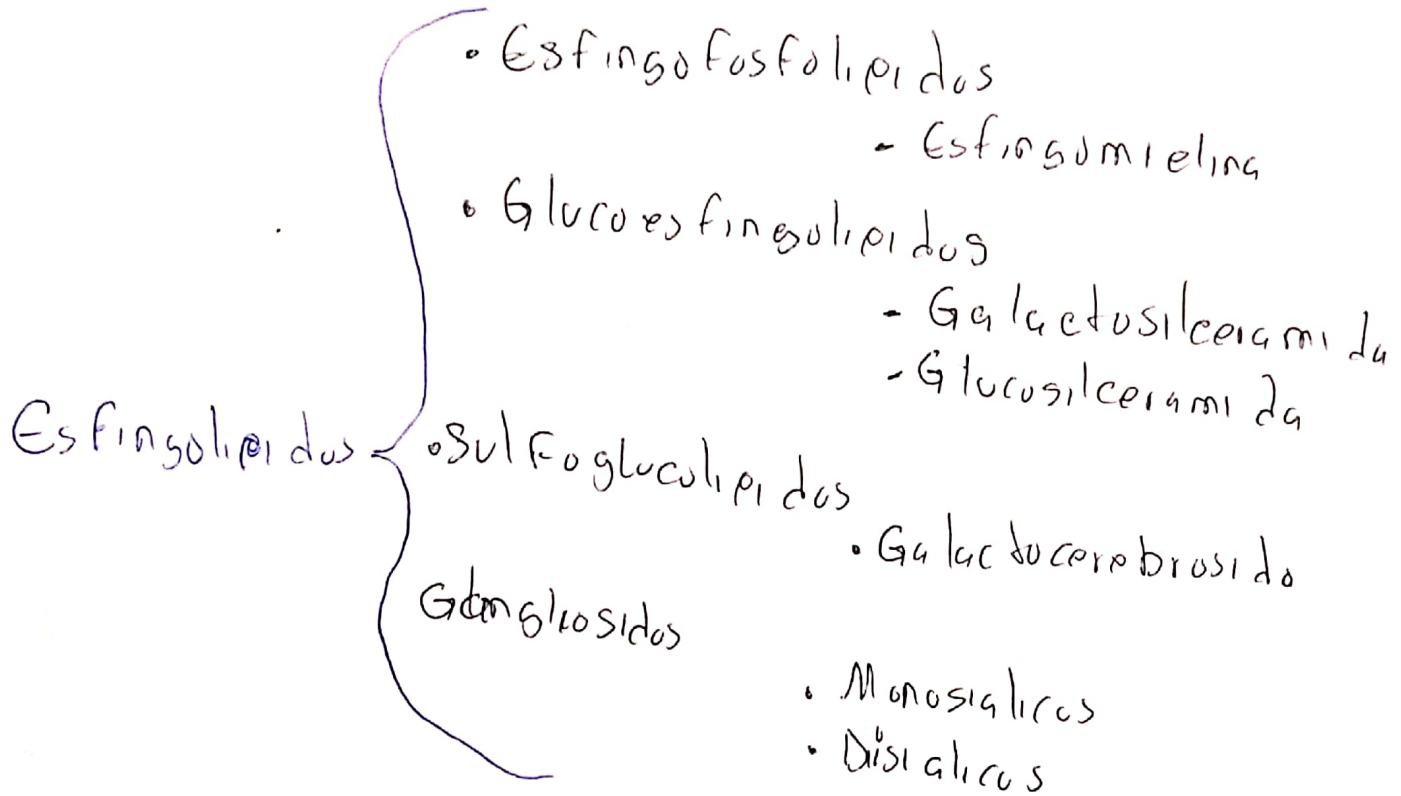 • Esfingofosfolipidos
- Esfingomielina
• Glucoesfingolipidos
- Galactosilceramida
- Glucosilceramida
Esfingolipidos
• Sulfoglucolipidos
• Galactocerebrosido
Gangliosidos
• Monosialicos
• Disialicos